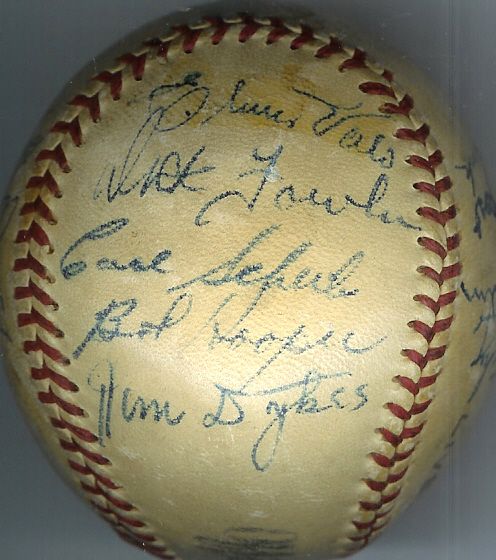 Elmer Valo
Dick Fowler
Carl Scheib
Bob Hooper
Jim Dykes